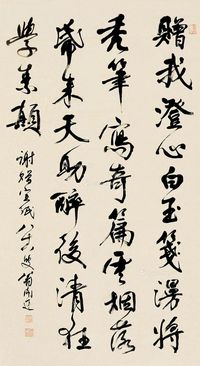 贈我澄心白玉箋漫將
禿筆寫奇篇雲烟落
紙朱天助醉後清狂
學素顛